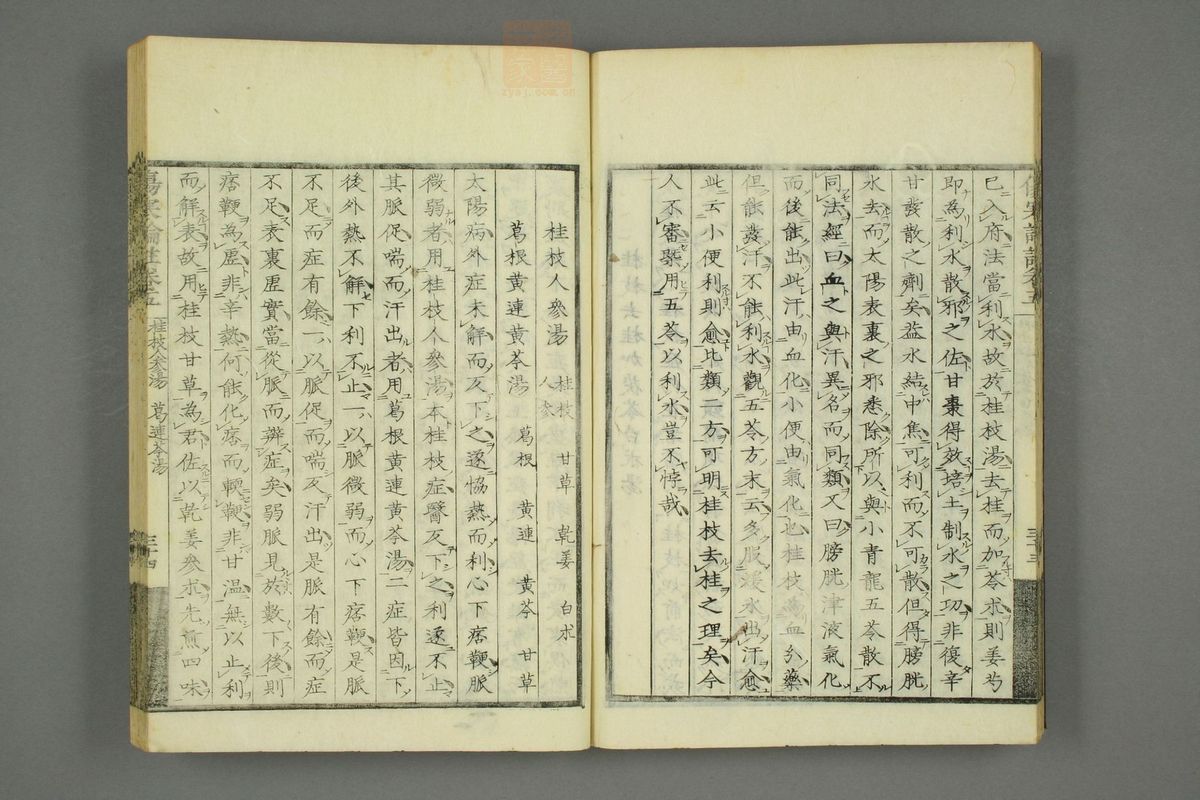 已入府法當利水故於桂枝湯去桂而加苓朮則姜芍
即為利水散邪之佐甘棗得效培土制水之功非復辛
甘發散之劑矣蓋水結中焦可利而不可散但得膀胱
水去而太陽表裏之邪悉除所以與小青龍五苓散不
同法經曰血之與汗異名而同類又曰膀胱津液氣化
而後能出此汗由血化小便由氣化也桂枝為血分藥
但能發汗不能利水觀五苓方末云多服煖水出汗愈
此云小便利則愈比類二方可明桂枝去桂之理矣今
人不審槩用五苓以利水豈不悖哉
桂枝人參湯 桂枝 甘草 乾姜 白朮 人參
葛根黃連黃芩湯 葛根 黃連 黃芩 甘草
太陽病外症未解而又下之遂恊熱而利心下痞鞕脈
微弱者用桂枝人參湯本桂枝症醫又下之利遂不止
其脈促喘而汗出者用葛根黃連黃芩湯二症皆因下
後外熱不解下利不止一以脈微弱而心下痞鞕是脈
不足而症有餘一以脈促而喘又汗出是脈有餘而症
不足表裏虛實當從脈而辨症矣弱脈見於數下後則
痞鞕為虛非辛熱何能化痞而輭鞕非甘溫無以止利
而解表故用桂枝甘草為君佐以乾姜參朮先煎四味
桂枝人參湯 葛連芩湯
三十四
zysj.com.cn